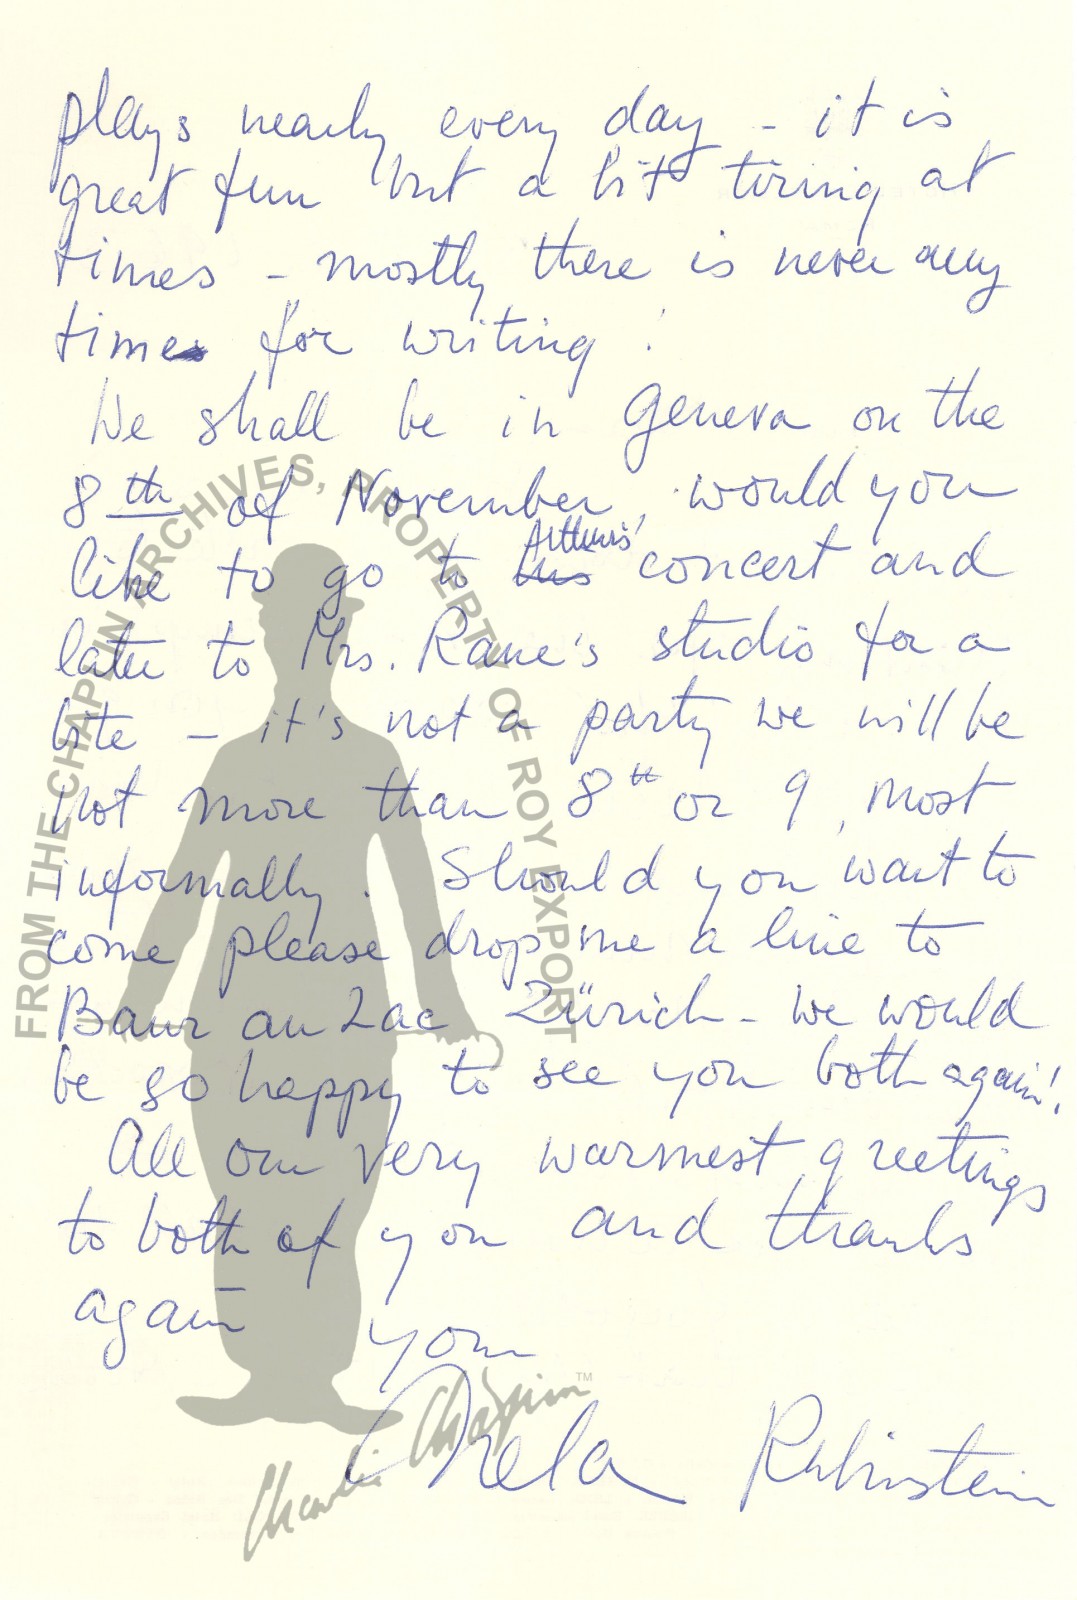 plays nearly every day - it is
great fun but a bit tiring at
times - mostly there is never any
time for writing!
We shall be in Geneva on the
8th of November, would you
like to go to his Arthurs' concert and
later to Mrs. Rane's studio for a
bite - it's not a party we will be
not more than 8th or 9, most
informally. Should you want to
come please drop me a line to
Baur au Lac Zürich - we would
be so happy to see you both again!
All our very warmest greetings
to both of you and thanks
again your
Nela Rubinstein
FROM THE CHAPLIN ARCHIVES, PROPERTY OF ROY EXPORT
Charlie Chaplin TM